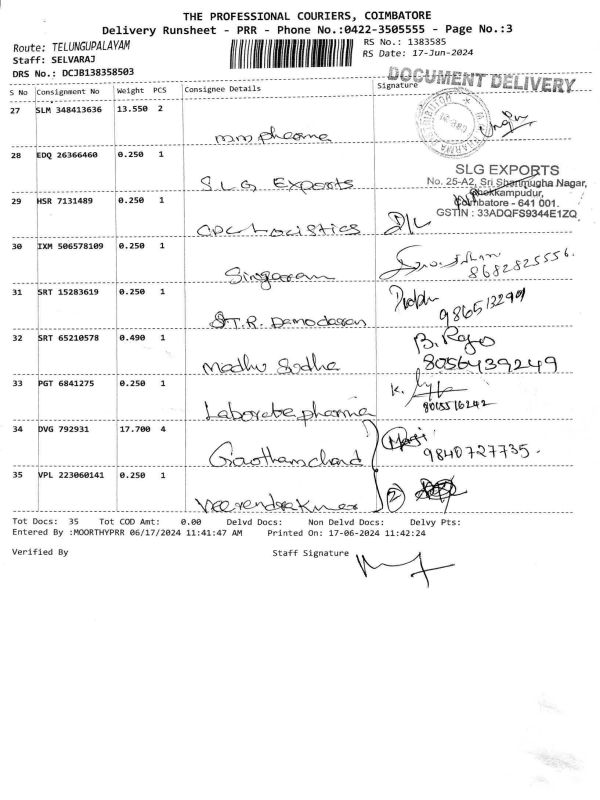 THE PROFESSIONAL COURIERS, COIMBATORE
Delivery Runsheet - PRR - Phone No.:0422-3505555 - Page No.:3
Route: TELUNGUPALAYAM
RS No.: 1383585
Staff: SELVARAJ
RS Date: 17-Jun-2024
DRS No.: DCJB138358503
DOCUMENT DELIVERY
S No Consignment No Weight PCS Consignee Details Signature
27 SLM 348413636 13.550 2
mm pharma
28 EDQ 26366460 0.250 1
S.L.G Exports
SLG EXPORTS
No. 25-A2, Sri Shanmugha Nagar,
Chokkampudur,
Coimbatore - 641 001.
GSTIN : 33ADQFS9344E1ZQ
29 HSR 7131489 0.250 1
Logistics
30 IXM 506578109 0.250 1
Singaram
8682825556.
31 SRT 15283619 0.250 1
T.R. Damodaran
32 SRT 65210578 0.490 1
Madhu Sudha
B. Raja
8056439249
33 PGT 6841275 0.250 1
Laborate pharma
K.
34 DVG 792931 17.700 4
Gauthamchand
9840727735.
35 VPL 223060141 0.250 1
Veerendrakumar
2
Tot Docs: 35 Tot COD Amt: 0.00 Delvd Docs: Non Delvd Docs: Delvy Pts:
Entered By :MOORTHYPRR 06/17/2024 11:41:47 AM Printed On: 17-06-2024 11:42:24
Verified By Staff Signature